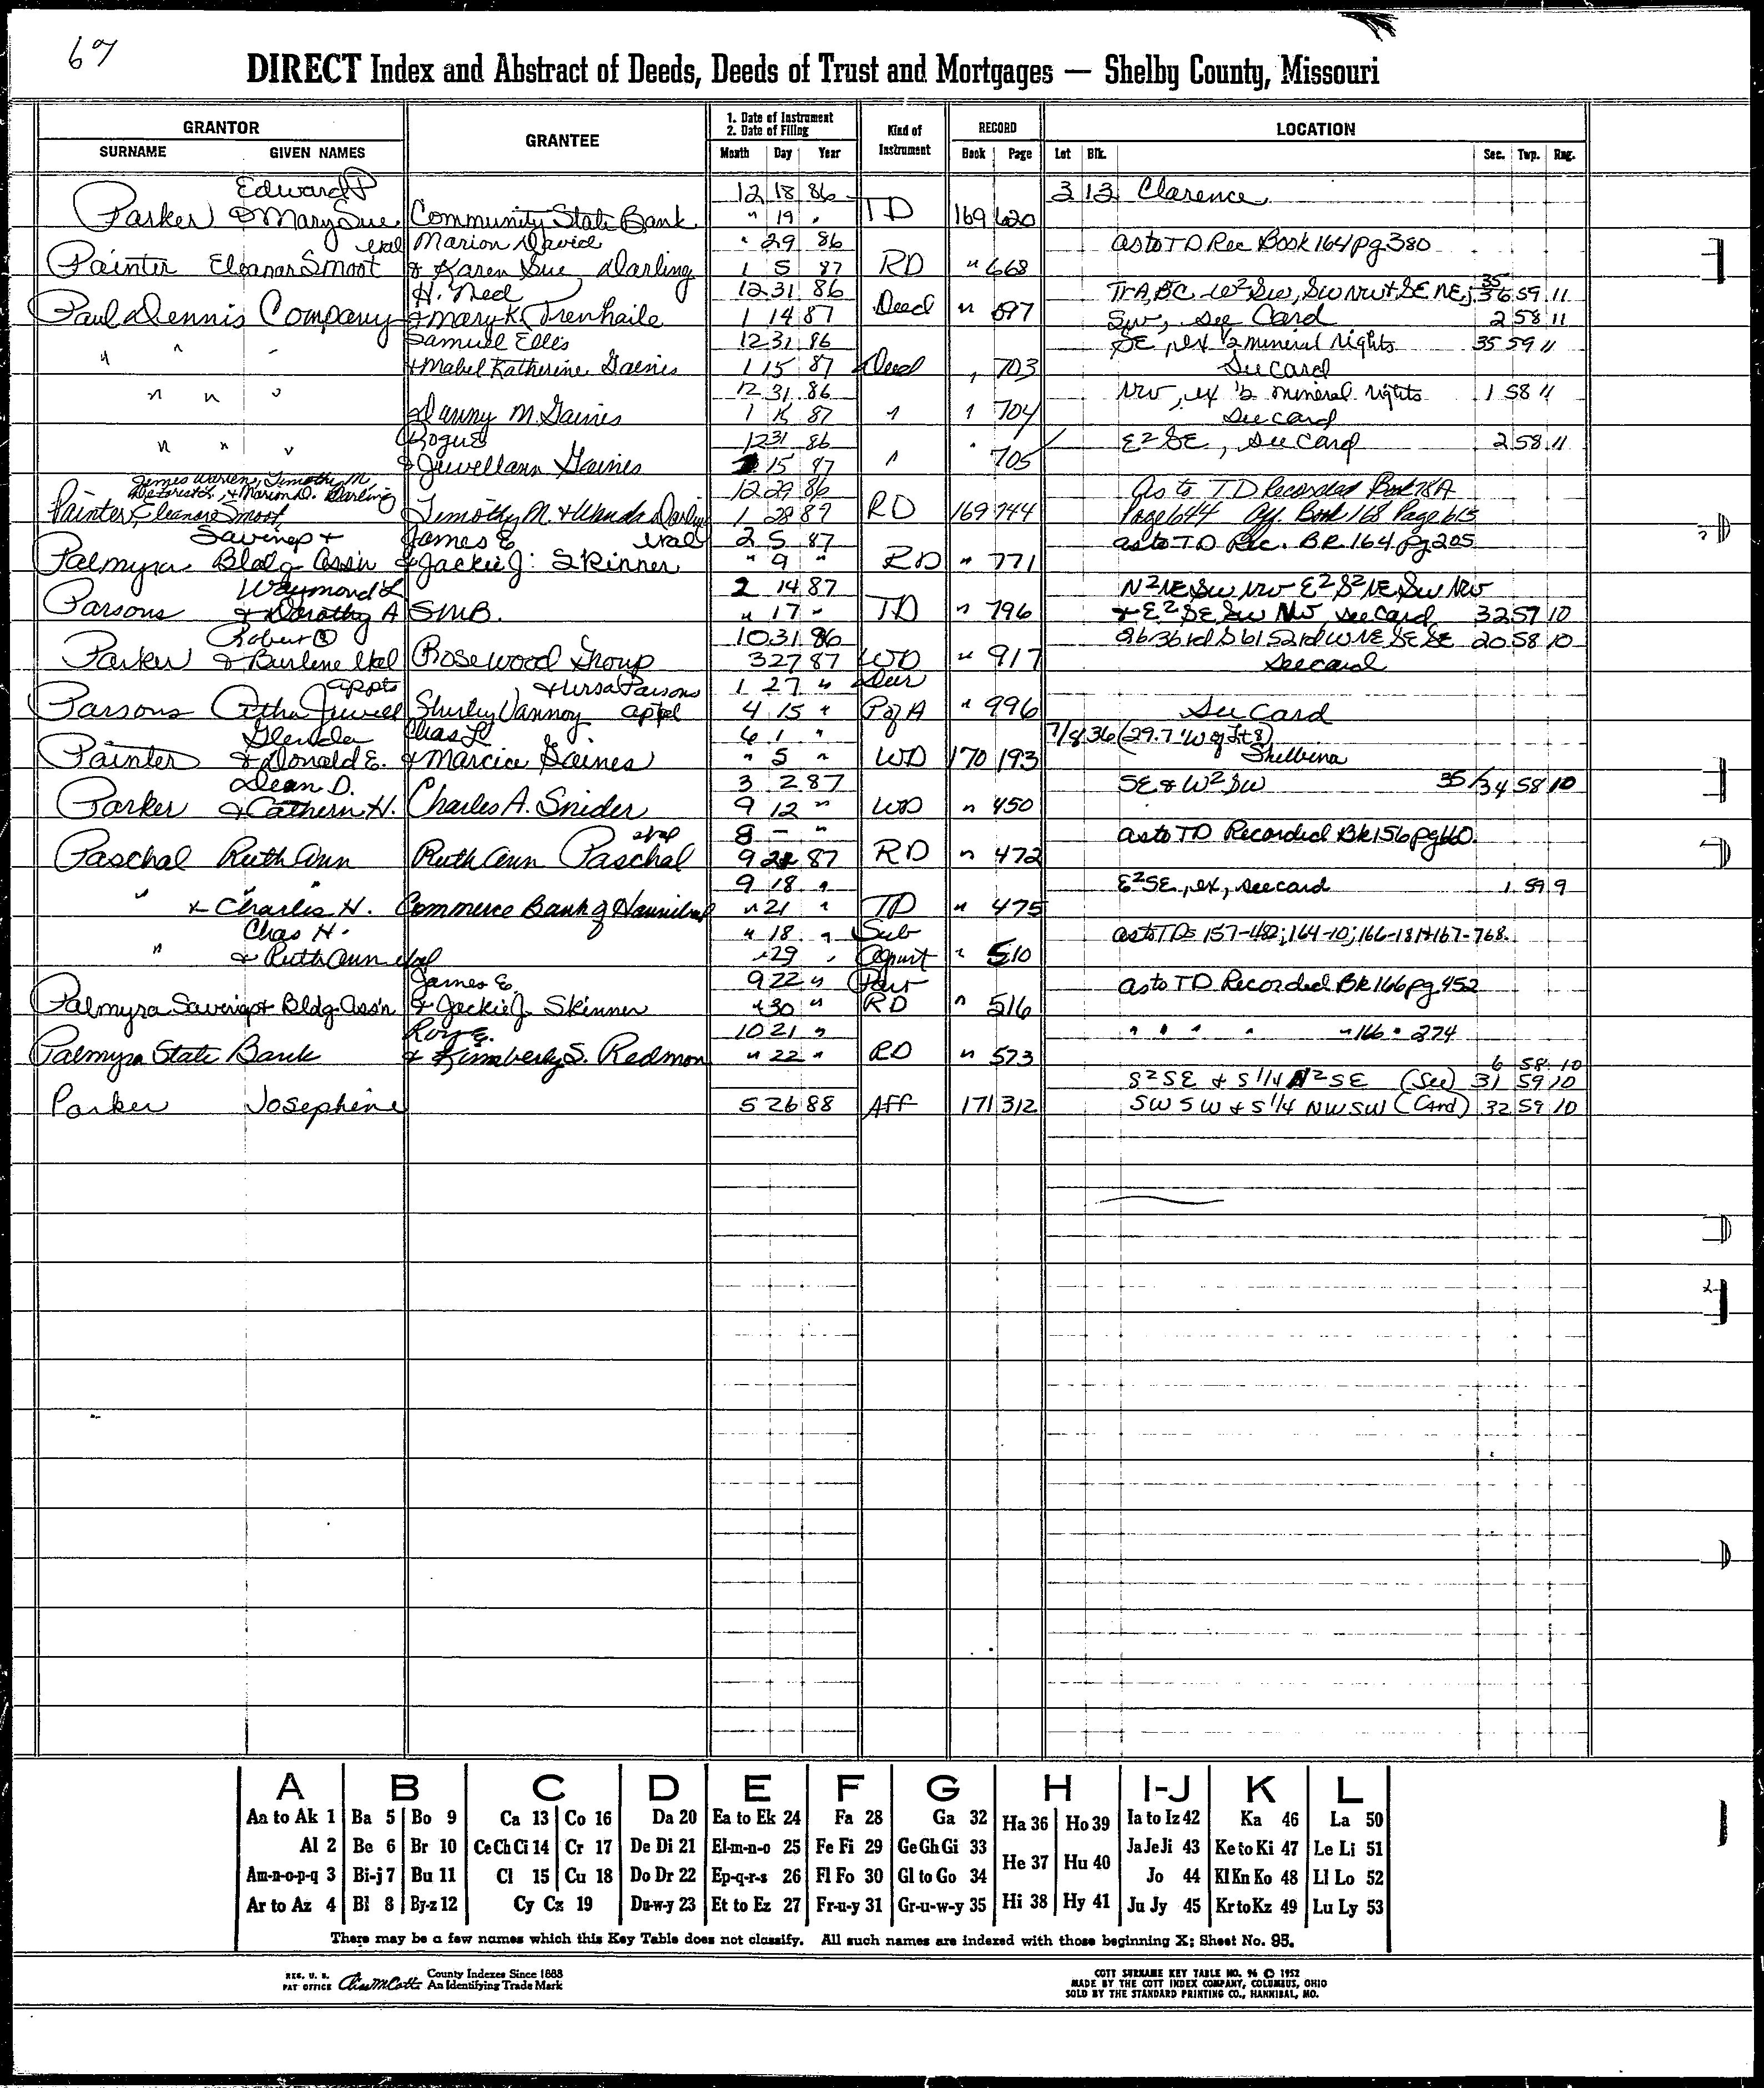 67
DIRECT Index and Abstract of Deeds, Deeds of Trust and Mortgages — Shelby County, Missouri
GRANTOR GRANTEE 1. Date of Instrument 2. Date of Filing Kind of Instrument RECORD LOCATION
SURNAME GIVEN NAMES Month Day Year Book Page Lot Blk. Sec. Twp. Rng.
Edward P 12 18 86 3 13 Clarence
Parker & Mary Sue Community State Bank " 19 " TD 169 620
etal Marion David " 29 86 as to TD Rec Book 164 pg 380
Painter Eleanor Smoot & Karen Sue Darling 1 5 87 RD " 668
H. Ned 12 31 86 Tr A, B C W²SW, SW NW & SE NE; 35 36 59 11
Paul Dennis Company & Mary K Trenhaile 1 14 87 Deed " 697 SW, see Card 2 58 11
Samuel Ellis 12 31 86 SE, ex ½ mineral rights 35 59 11
" " " & Mabel Katherine Gaines 1 15 87 Deed " 703 See Card
12 31 86 NW, ex ½ mineral rights 1 58 11
" " " Danny M. Gaines 1 15 87 " " 704 See card
12 31 86 E²SE, See Card 2 58 11
" " " & Jewellann Gaines 15 87 " " 705
James Warren, Timothy M, & Marion D. Darling 12 29 86 As to TD Recorded Book 78A
Painter, Eleanor Smoot Timothy M. & Wanda Darling 1 28 87 RD 169 744 Page 644 Book 168 Page 615
Savings & James E etal 2 5 87 as to TD Rec. BK 164 pg 205
Palmyra Bldg Ass'n & Jackie J. Skinner " 9 " RD " 771
Waymond L 2 14 87 N²NE SW NW E²S²NE SW NW
Parsons & Dorothy A SMB. " 17 " TD " 796 & E²SE SW NW, see Card 32 57 10
Robert 10 31 86 SE SE 20 58 10
Parker & Burlene etal Rosewood Group 3 27 87 WD " 917 See card
appts & Ursa Parsons 1 27 " Dur
Parsons Jewell Shirley Vannoy 4 15 " P of A " 996 See Card
Glenda Chas L 6 1 " 7/8 36 (29.7' W of Lt 8)
Painter & Donald E. & Marcia Gaines " 5 " WD 170 193 Shelbina
Dean D. 3 2 87 SE & W²SW 35/34 58 10
Parker & Cathern H. Charles A. Snider 9 12 " WD " 450
etal 8 – " as to TD Recorded Bk 156 pg 660.
Paschal Ruth Ann Ruth Ann Paschal 9 21 87 RD " 472
9 18 " E²SE, ex, see card 1 59 9
" " " & Charles H. Commerce Bank of Hannibal " 21 " TD " 475
Chas H. " 18 " Sub as to TDs 157-482; 164-10; 166-181 & 167-768.
" & Ruth Ann etal " 29 " Agmt " 510
James E. 9 22 " Par as to TD Recorded Bk 166 pg 452
Palmyra Savings & Bldg Ass'n & Jackie J Skinner " 30 " RD " 516
Roy E. 10 21 " " " " " " 166 " 274
Palmyra State Bank & Kimberly S. Redmon " 22 " RD " 573
6 58 10
S²SE & S 1/4 N²SE (See) 31 59 10
Parker Josephine 5 26 88 Aff 171 312 SW SW & S 1/4 NW SW (Card) 32 59 10
A B C D E F G H I-J K L
Aa to Ak 1 Ba 5 Bo 9 Ca 13 Co 16 Da 20 Ea to Ek 24 Fa 28 Ga 32 Ha 36 Ho 39 Ia to Iz 42 Ka 46 La 50
Al 2 Be 6 Br 10 Ce Ch Ci 14 Cr 17 De Di 21 El-m-n-o 25 Fe Fi 29 Ge Gh Gi 33 He 37 Hu 40 Ja Je Ji 43 Ke to Ki 47 Le Li 51
Am-n-o-p-q 3 Bi-j 7 Bu 11 Cl 15 Cu 18 Do Dr 22 Ep-q-r-s 26 Fl Fo 30 Gl to Go 34 Jo 44 Kl Kn Ko 48 Ll Lo 52
Ar to Az 4 Bl 8 By-z 12 Cy Cz 19 Du-w-y 23 Et to Ez 27 Fr-u-y 31 Gr-u-w-y 35 Hi 38 Hy 41 Ju Jy 45 Kr to Kz 49 Lu Ly 53
There may be a few names which this Key Table does not classify. All such names are indexed with those beginning X; Sheet No. 95.
REG. U. S. PAT OFFICE County Indexes Since 1888 An Identifying Trade Mark
COTT SURNAME KEY TABLE NO. 96 © 1952
MADE BY THE COTT INDEX COMPANY, COLUMBUS, OHIO
SOLD BY THE STANDARD PRINTING CO., HANNIBAL, MO.